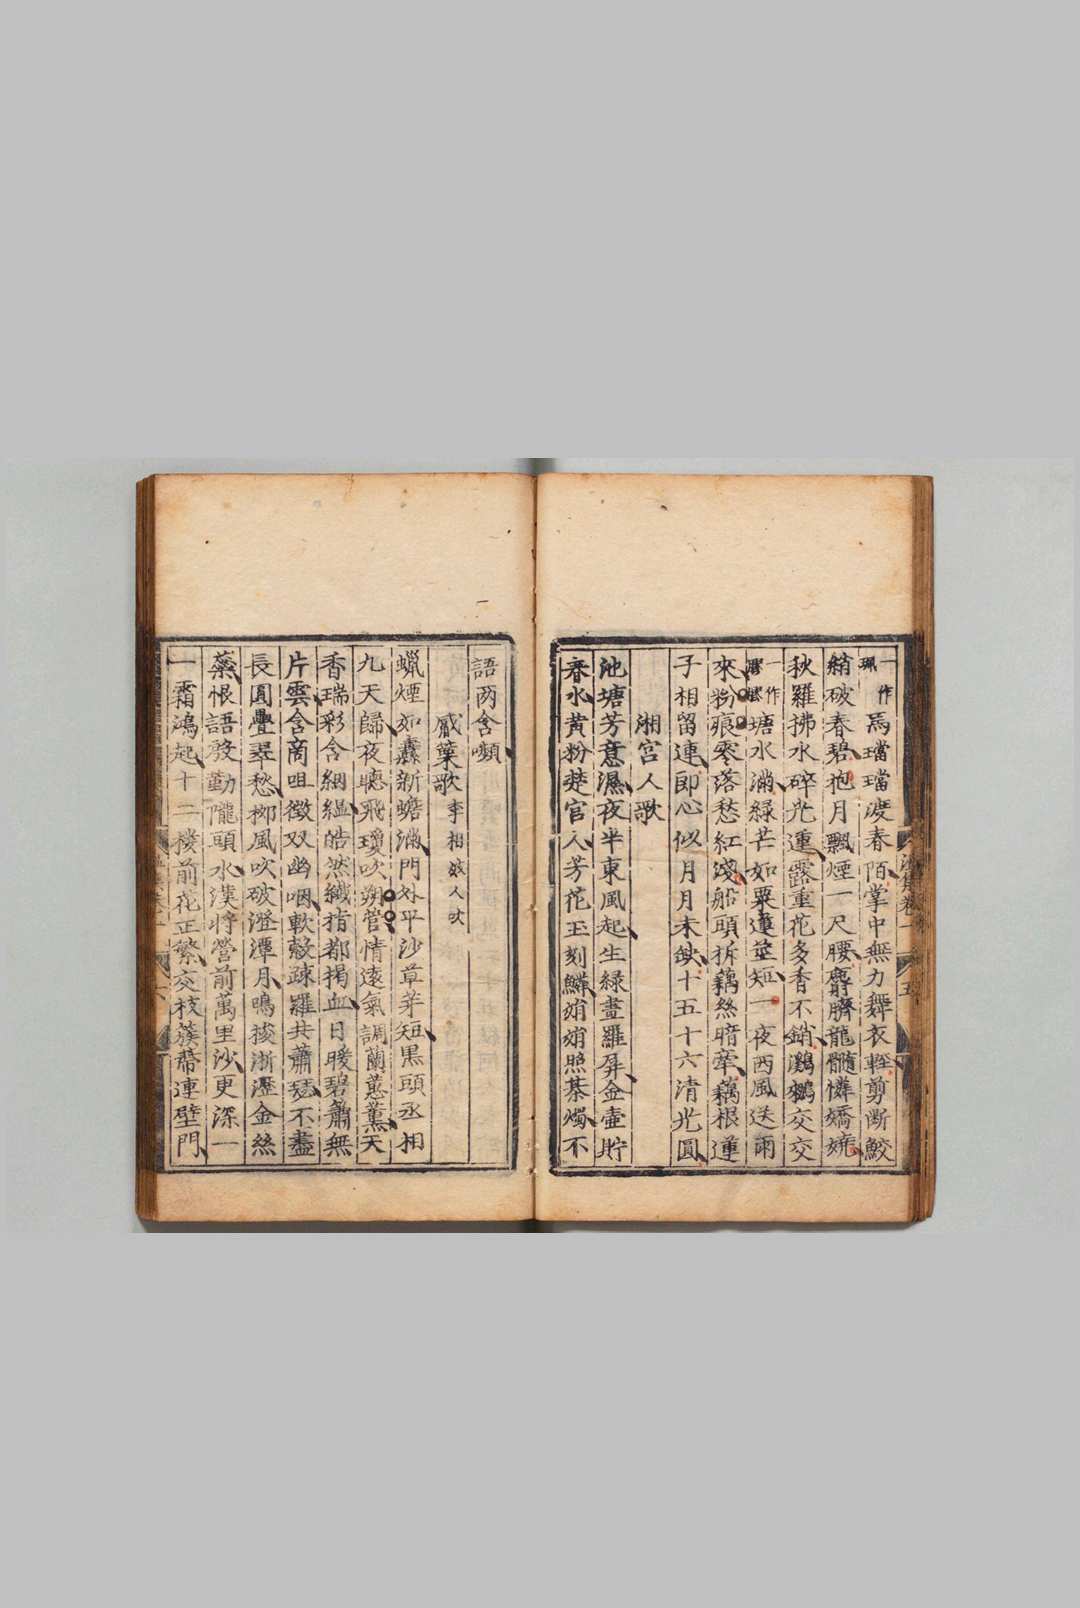 一作珮馬璫璫渡春陌掌中無力舞衣輕剪斷鮫
綃破春碧抱月飄煙一尺腰麝臍龍髓憐嬌嬈
秋羅拂水碎光露重花多香不銷鸂鶒交交
一作膠膠塘水滿綠芒如粟蓮莖短一夜西風送雨
來粉痕零落愁紅淺船頭折藕絲暗牽藕根蓮
子相留連郎心似月月未缺十五十六清光圓
湘宮人歌
池塘芳意濕夜半東風起生綠畫羅屏金壺貯
春水黃粉楚宮人芳花玉刻鱗娟娟照棊燭不
語兩含嚬
觱篥歌李相妓人吹
蠟煙如纛新蟾滿門外平沙草芽短黑頭丞相
九天歸夜聽飛瓊吹朔管情遠氣調蘭蕙薰天
香瑞彩含絪縕皓然纖指都揭血日暖碧簫無
片雲含商咀徵双幽咽軟縠疎羅共蕭瑟不盡
長圓疊翠愁柳風吹破澄潭月鳴梭淅瀝金絲
蘂恨語殷勤隴頭水漢將營前萬里沙更深一
一霜鴻起十二樓前花正繁交枝簇蔕連壁門